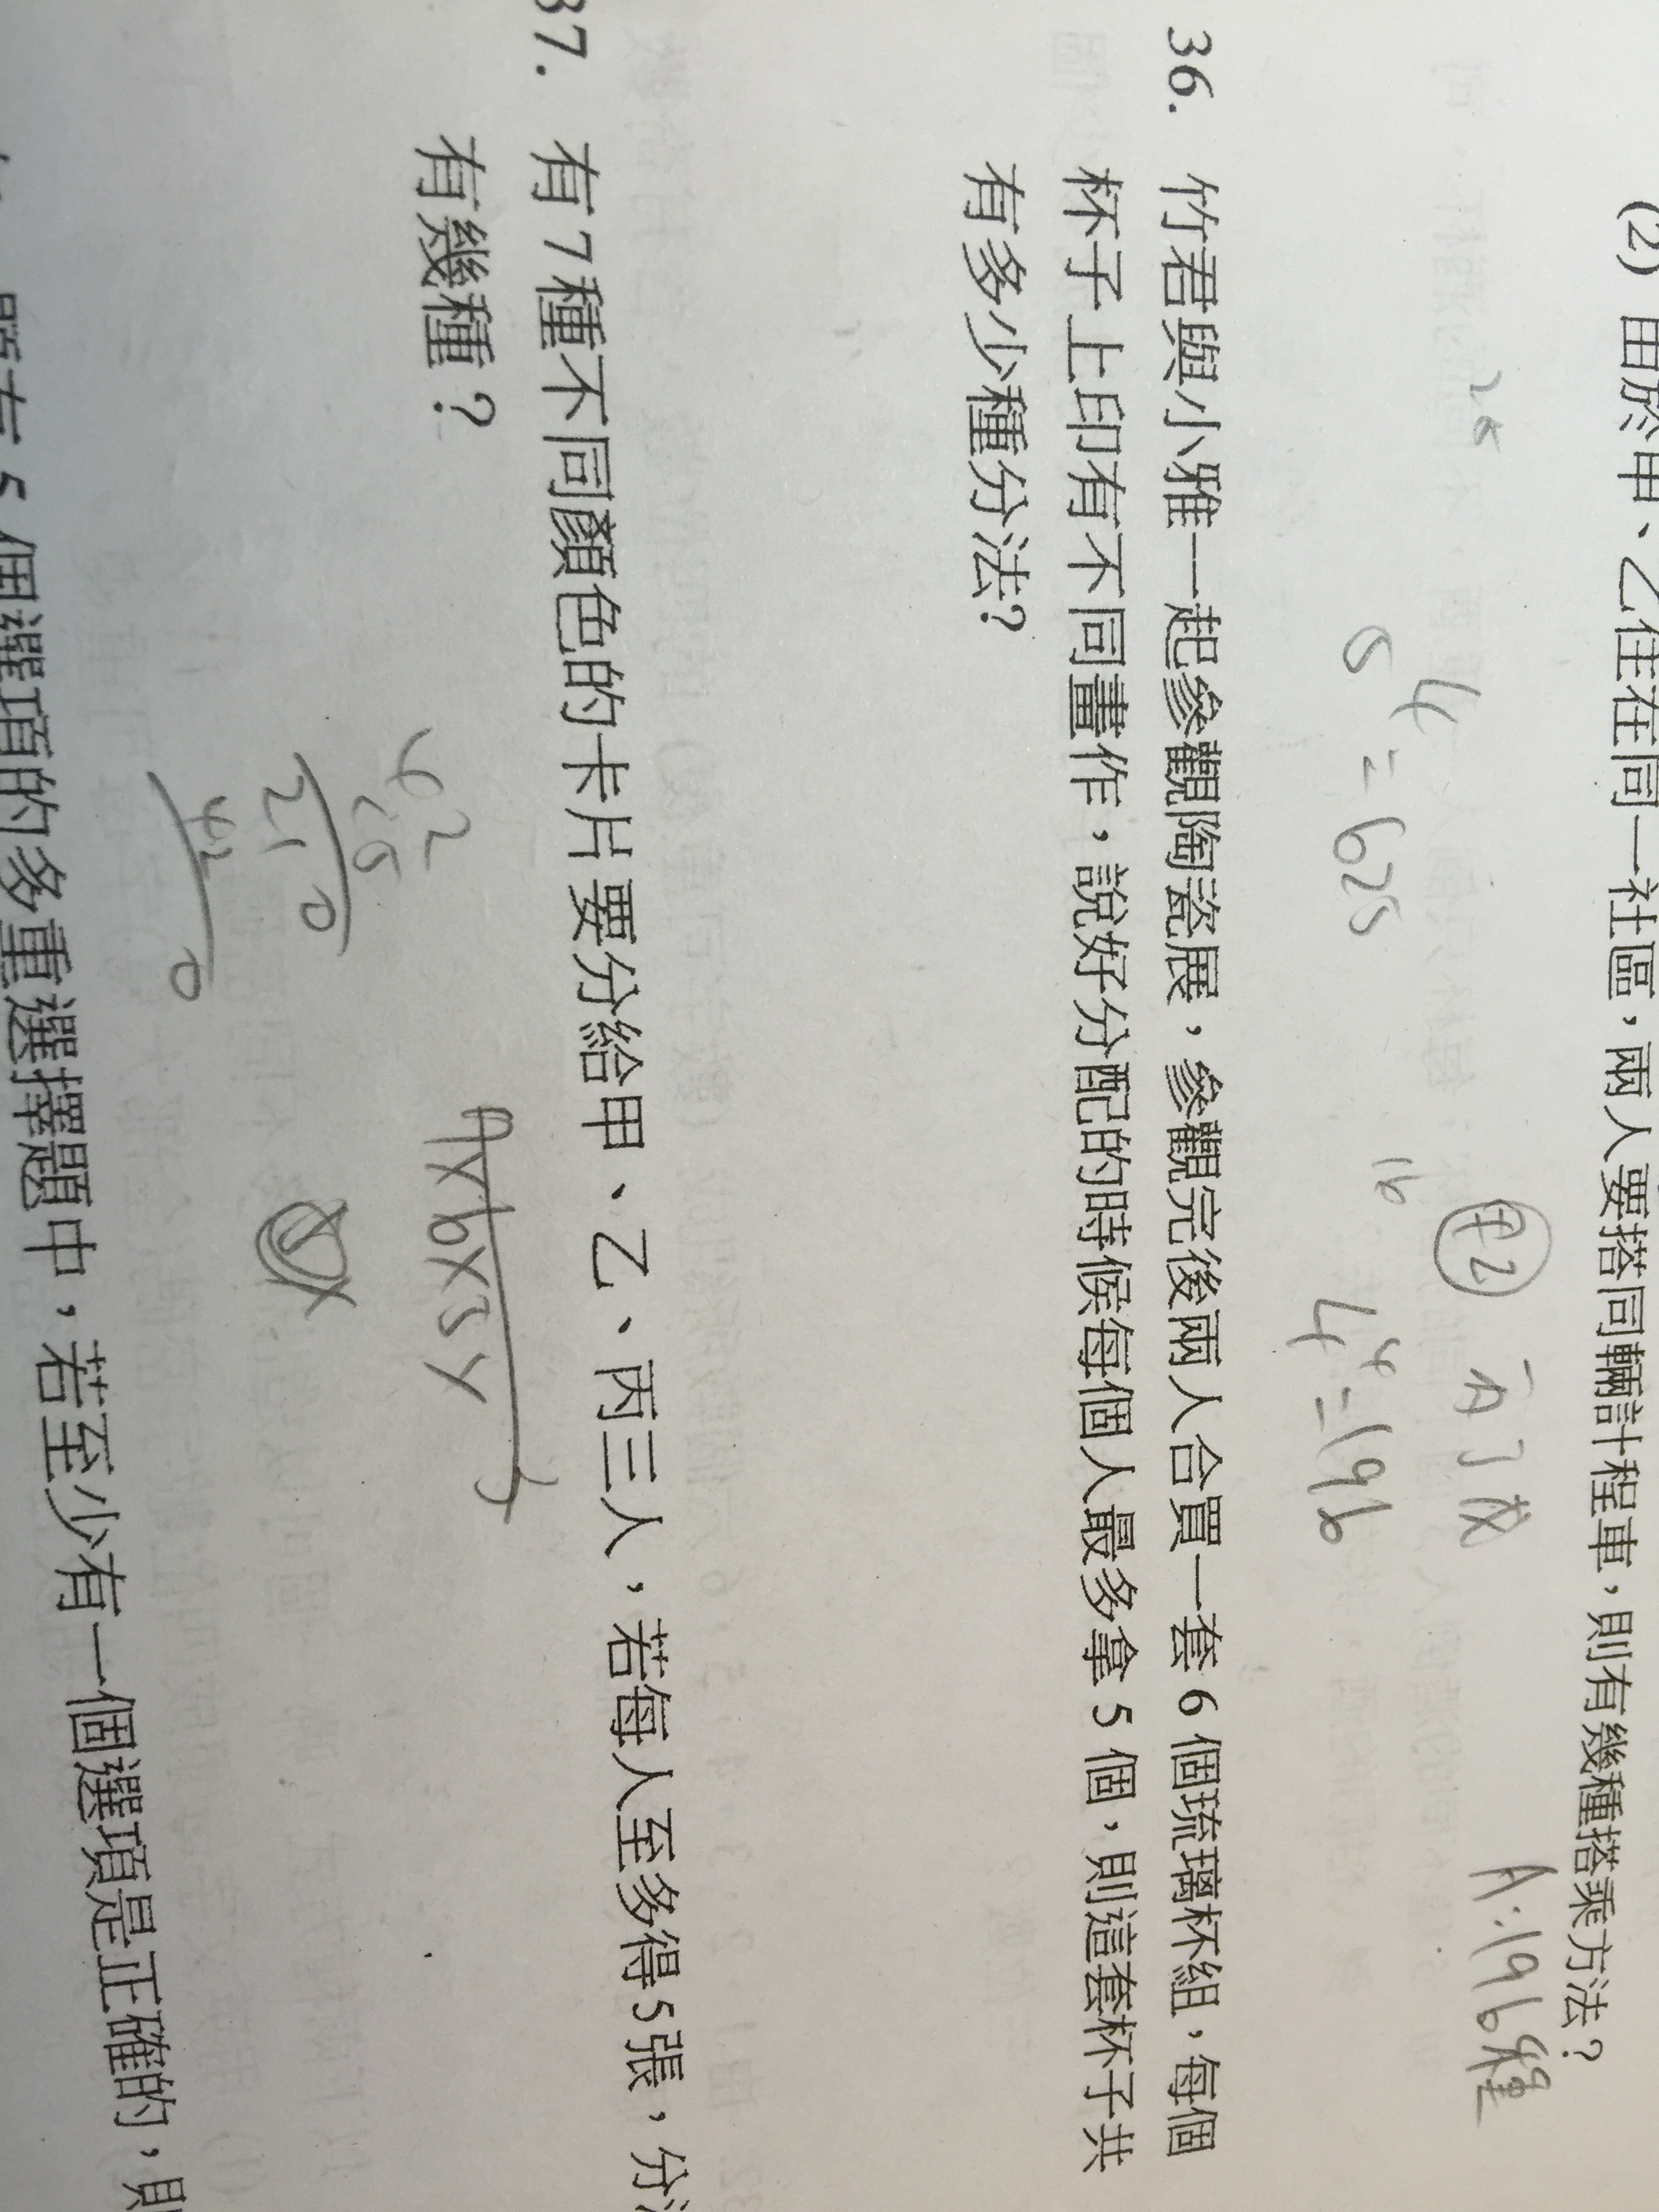 (2) 由於甲、乙住在同一社區，兩人要搭同輛計程車，則有幾種搭乘方法？
甲乙 丙丁戊
A:196種
5⁴=625
36. 竹君與小雅一起參觀陶瓷展，參觀完後兩人合買一套6個琉璃杯組，每個
杯子上印有不同畫作，說好分配的時候每個人最多拿5個，則這套杯子共
有多少種分法？
37. 有7種不同顏色的卡片要分給甲、乙、丙三人，若每人至多得5張，分
有幾種？
42
210
420
題有5個選項的多重選擇題中，若至少有一個選項是正確的，則